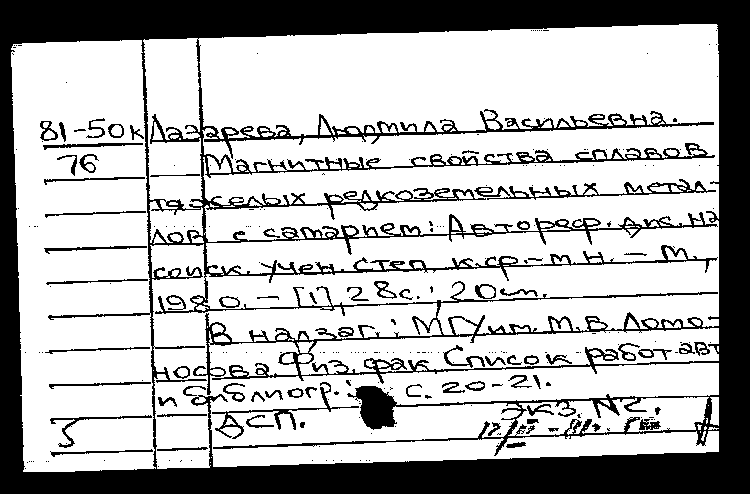 81-50к Лазарева, Людмила Васильевна.
76 Магнитные свойства сплавов
тяжелых редкоземельных метал-
лов с самарием: Автореф. дис. на
соиск. учен. степ. к.ф.-м.н. - М.,
1980. - [1], 28с.; 20см.
В надзаг.: МГУ им. М.В. Ломо-
носова. Физ. фак. Список работ авт
и библиогр.: с. 20-21.
5 ДСП. Экз. N2.